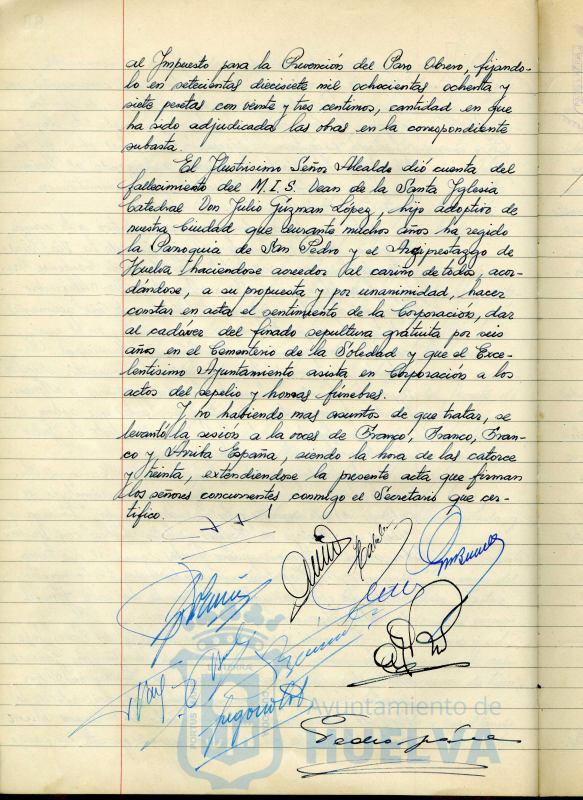 al Impuesto para la Prevención del Paro Obrero, fijando-
lo en setecientas diecisiete mil ochocientas ochenta y
siete pesetas con veinte y tres centimos, cantidad en que
ha sido adjudicada las obras en la correspondiente
subasta.
El Ilustrisimo Señor Alcalde dió cuenta del
fallecimiento del M.I.S. Dean de la Santa Iglesia
Catedral Don Julio Gúzman López, hijo adoptivo de
nuestra Ciudad que durante muchos años ha regido
la Parroquia de San Pedro y el Arciprestazgo de
Huelva haciendose acreedor al cariño de todos, acor-
dándose, a su propuesta y por unanimidad, hacer
constar en acta el sentimiento de la Corporación, dar
al cadáver del finado sepultura gratuita por seis
años en el Cementerio de la Soledad y que el Exce-
lentísimo Ayuntamiento asista en Corporación a los
actos del sepelio y honras fúnebres.
Y no habiendo mas asuntos de que tratar, se
levantó la sesión a la voces de Franco, Franco, Fran-
co y Arriba España, siendo la hora de las catorce
y treinta, extendiendose la presente acta que firman
los señores concurrentes conmigo el Secretario que cer-
tifico.
Ayuntamiento de
HUELVA